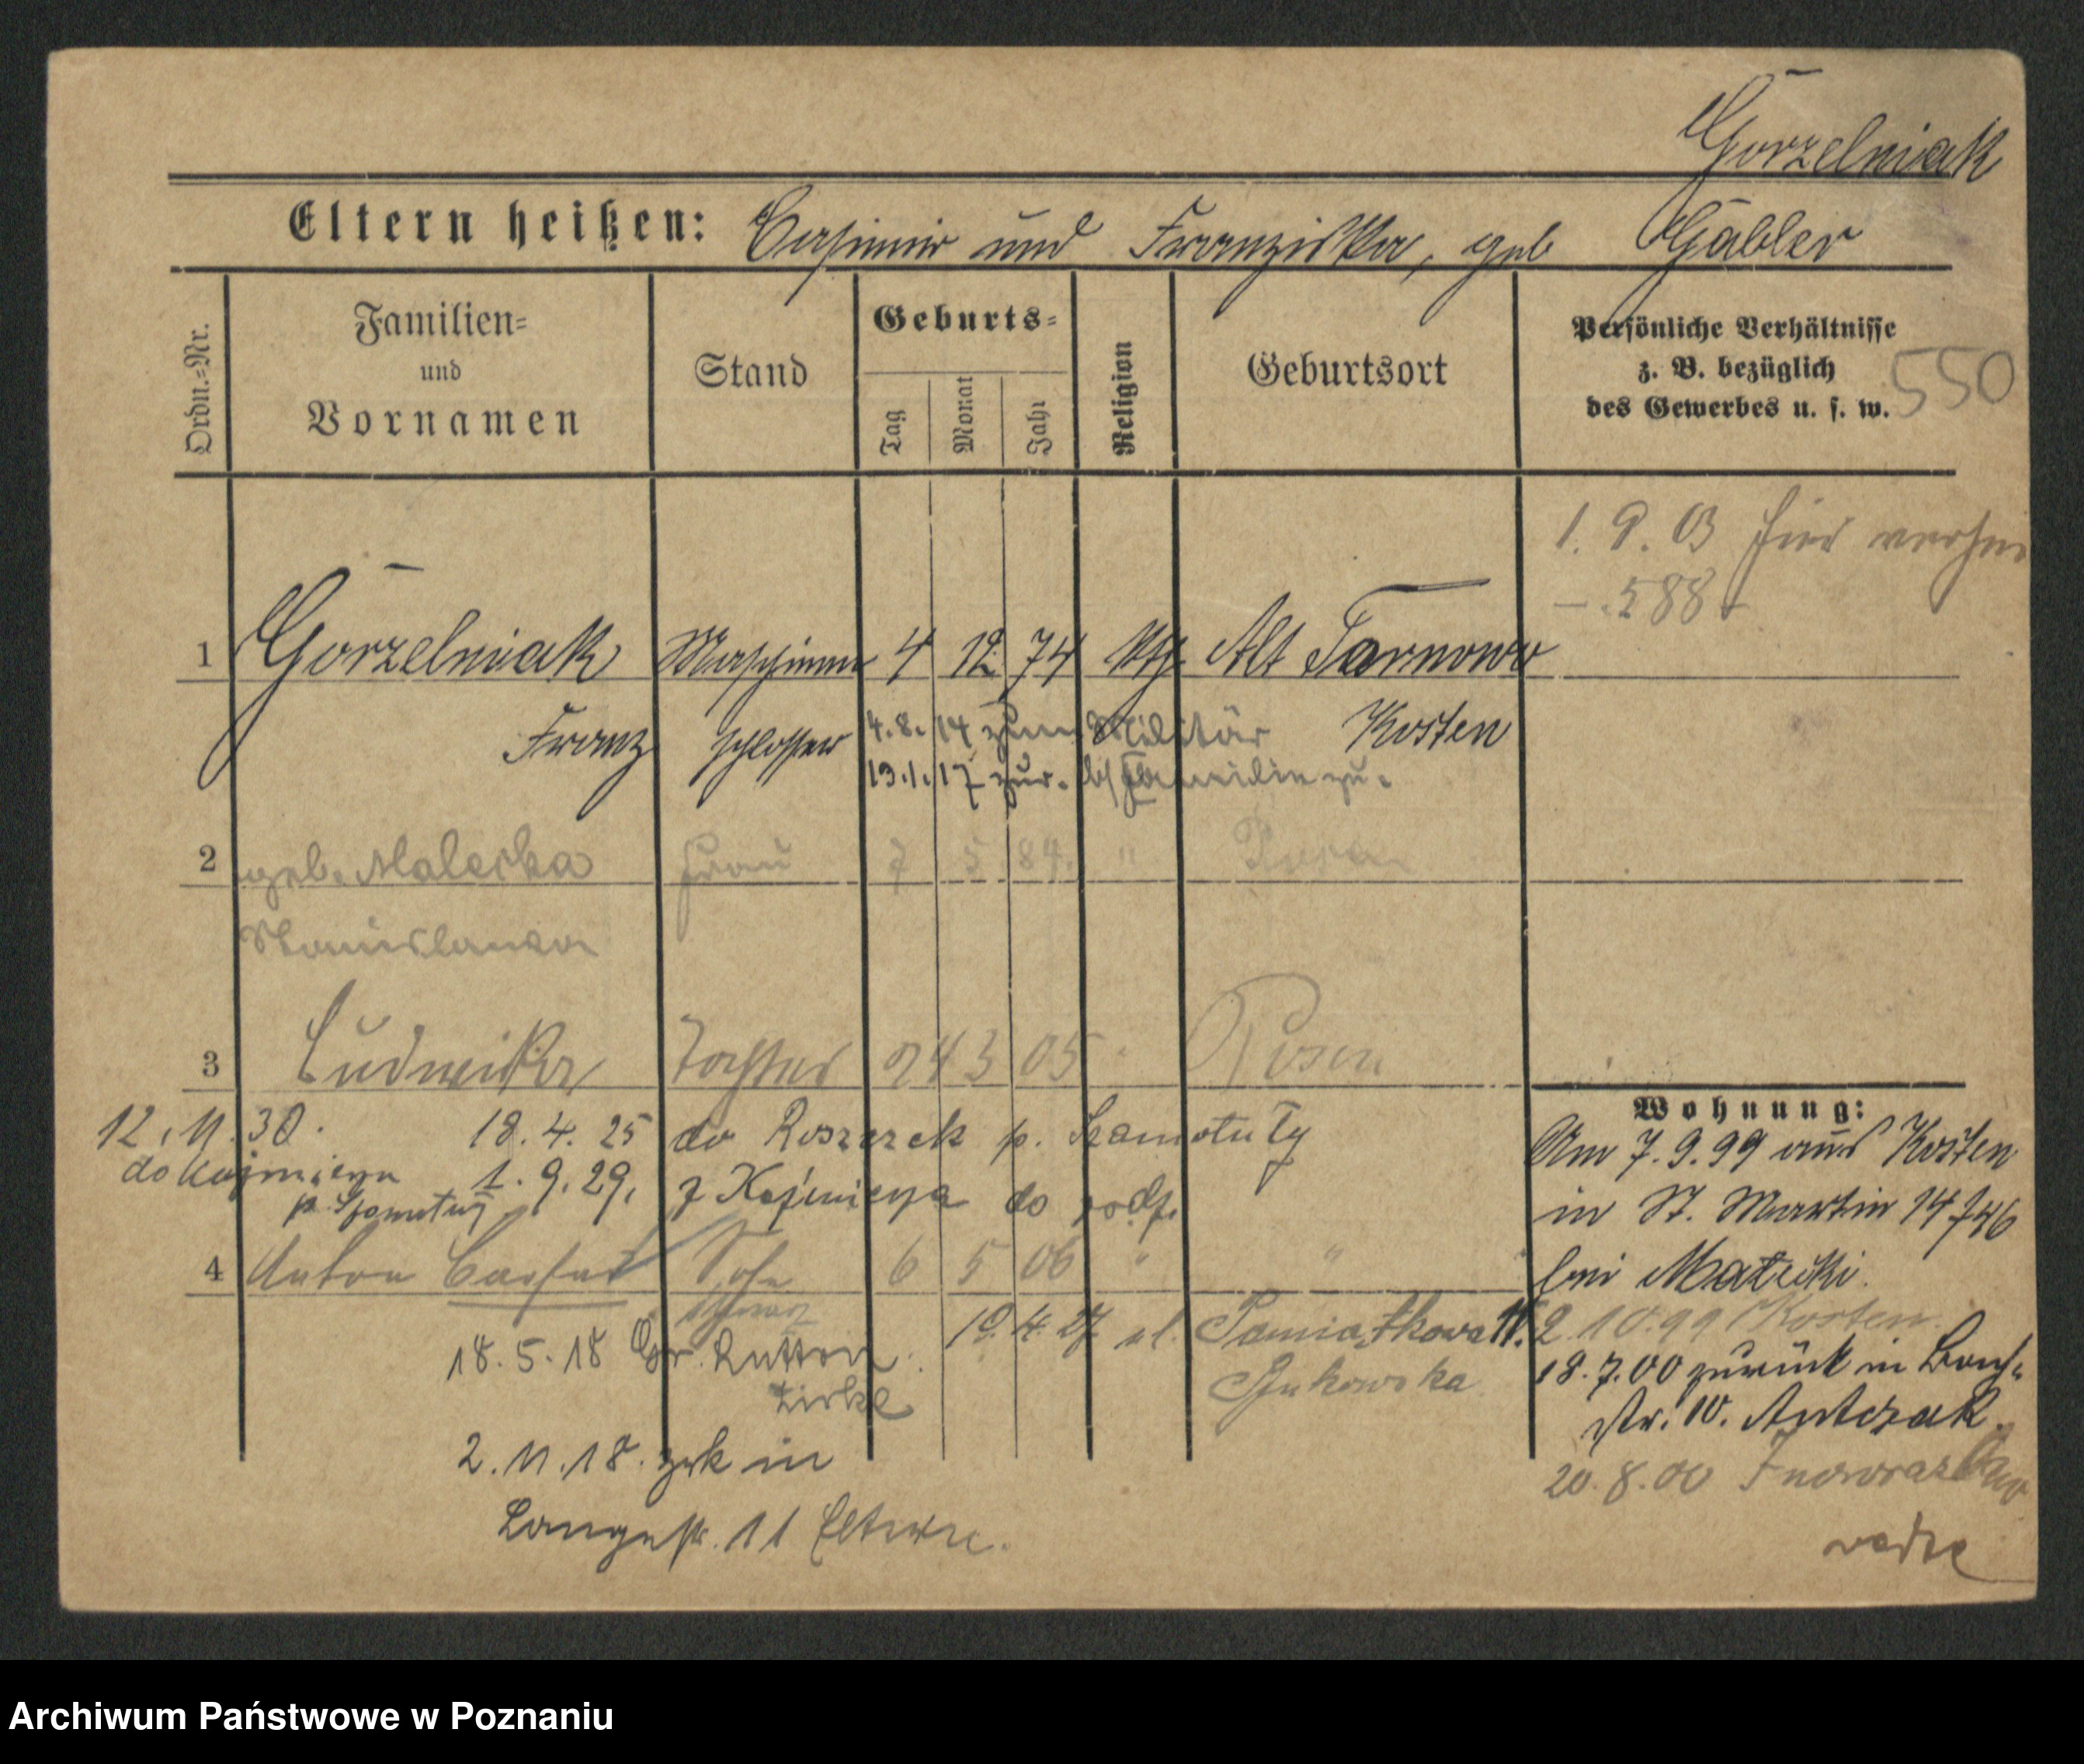 Gorzelniak
Eltern heißen: Casimir und Franziska, geb Gäbler
Ordn.=Nr.
Familien=
und
Vornamen
Stand
Geburts=
Tag
Monat
Jahr
Religion
Geburtsort
Persönliche Verhältnisse
z. B. bezüglich
des Gewerbes u. s. w.
550
1. 9. 03 hier
588
1 Gorzelniak Maschinen 4 12 74 kth Alt Tarnowo
Franz schlosser Kosten
4.8.14 zum Militär
13.1.17 zur. Familie zu.
2 geb. Maleska Frau 7 5 84. " Posen
Stanislawa
3 Ludwika Tochter 24 3 05 " Posen
12.11.30. 18.4.25 do p. Szamotuły
do Kaźmierza 1.9.29. z Kaźmierza do
p. Szamotuły
4 Anton Sohn 6 5 06 " "
18.5.18 Gr.
Zirke
2.11.18. zrk in
Langestr. 11
19.4.27 ul. Pamiątkowa 11.
Żukowska
Wohnung:
Am 7.9.99 aus Kosten
in St. Martin 14
bei
2.10.99 Kosten.
18.7.00 zurück in
str. 10. Antczak.
20.8.00 Inowrazlaw
Archiwum Państwowe w Poznaniu